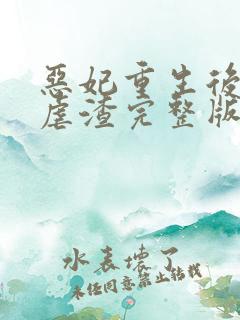 惡妃重生後
虐渣完整版
水表壞了
未經同意禁止轉載